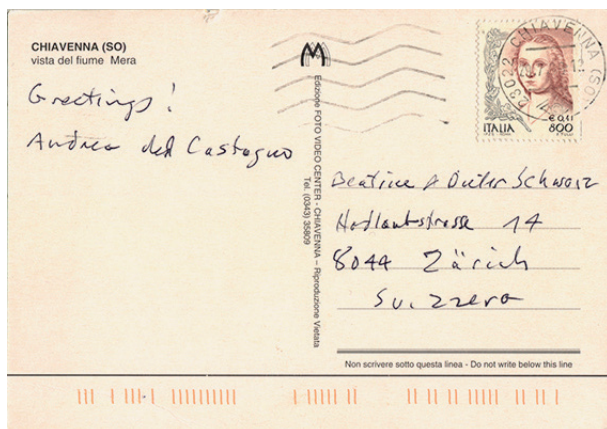 CHIAVENNA (SO)
vista del fiume Mera
Greetings!
Andrea del Castagno
M
Edizione FOTO VIDEO CENTER - CHIAVENNA - Riproduzione Vietata
Tel. (0343) 35809
CHIAVENNA (SO)
23022
ITALIA
€ 0,41
800
Beatrice & Dieter Schwarz
Hadlaubstrasse 14
8044 Zürich
Svizzera
Non scrivere sotto questa linea - Do not write below this line